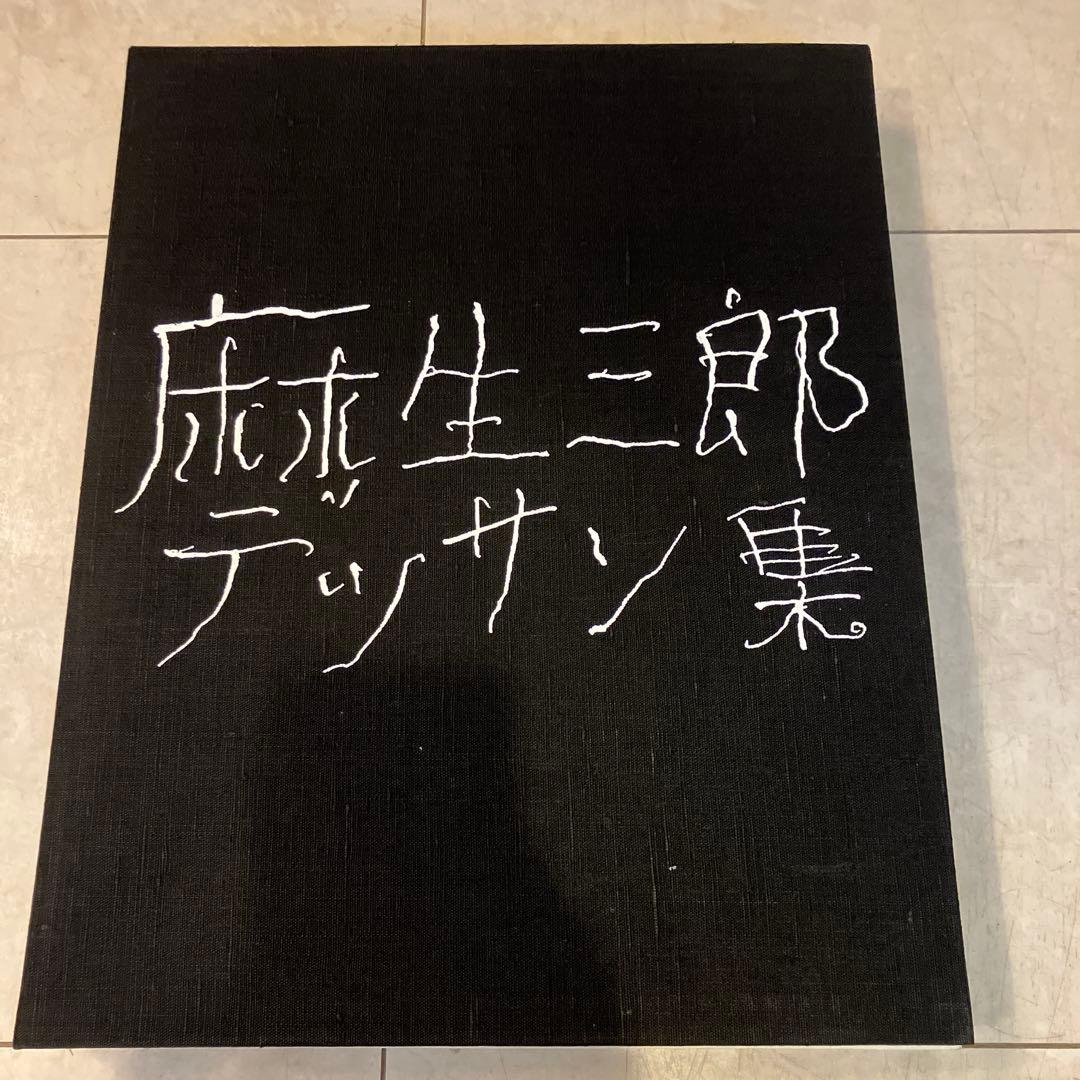 麻生三郎
デッサン集